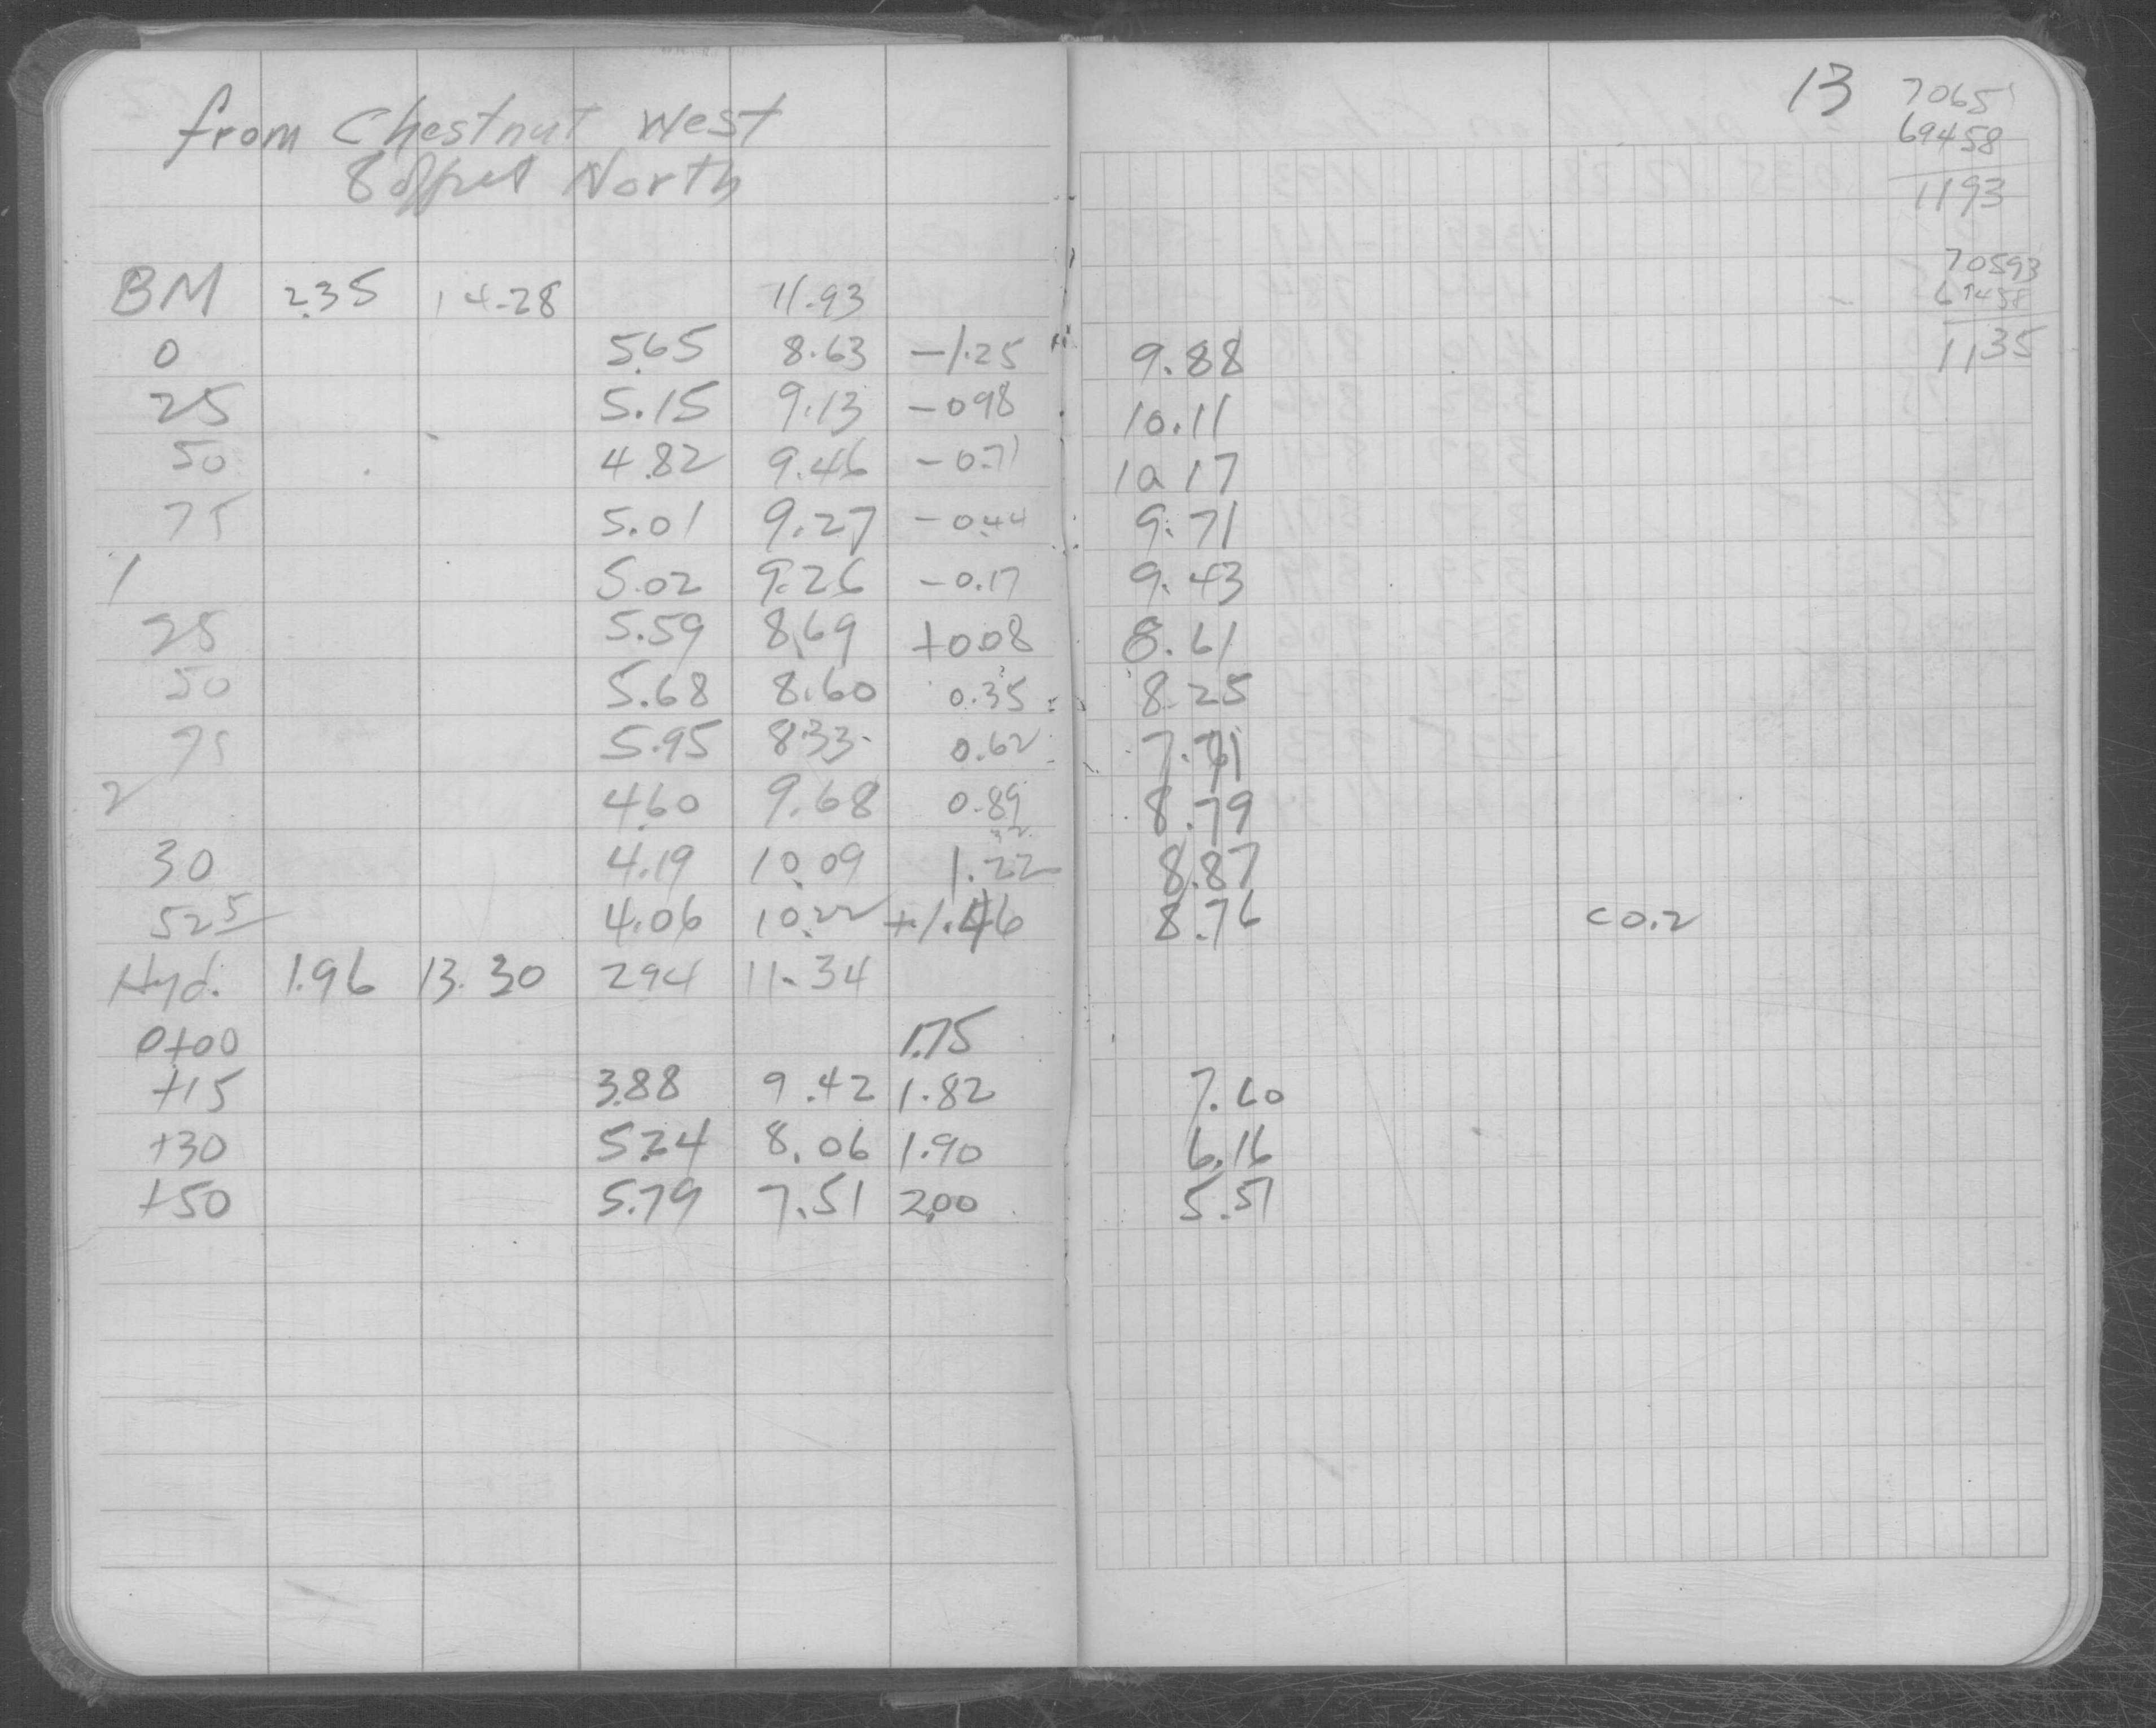 from Chestnut West
8 offset North
BM 2.35 14.28 11.93
0 5.65 8.63 -1.25 9.88
25 5.15 9.13 -0.98 10.11
50 4.82 9.46 -0.71 10.17
75 5.01 9.27 -0.44 9.71
1 5.02 9.26 -0.17 9.43
25 5.59 8.69 +0.08 8.61
50 5.68 8.60 0.35 8.25
75 5.95 8.33 0.62 7.71
2 4.60 9.68 0.89 8.79
30 4.19 10.09 1.22 8.87
52 5 4.06 10.22 +1.46 8.76 C0.2
Hyd. 1.96 13.30 2.94 11.34
0+00 1.75
+15 3.88 9.42 1.82 7.60
+30 5.24 8.06 1.90 6.16
+50 5.79 7.51 2.00 5.51
13
70651
69458
1193
70593
69458
1135